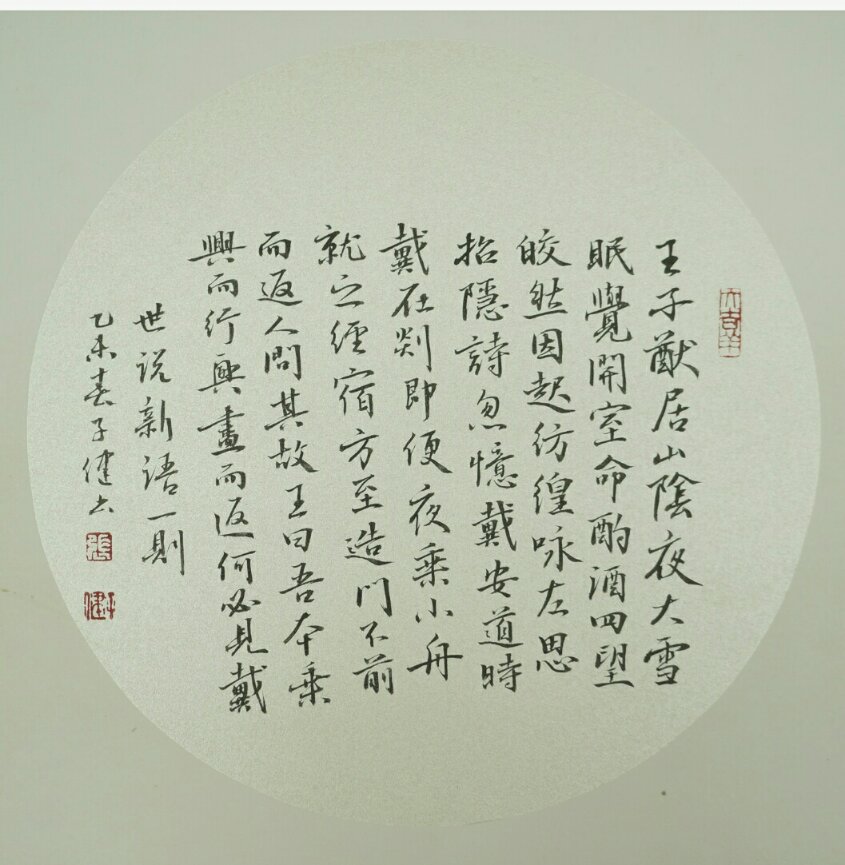 王子猷居山陰夜大雪
眠覺開室命酌酒四望
皎然因起彷徨咏左思
招隱詩忽憶戴安道時
戴在剡即便夜乘小舟
就之經宿方至造門不前
而返人問其故王曰吾本乘
興而行興盡而返何必見戴
世说新语一則
乙未春子健书
張